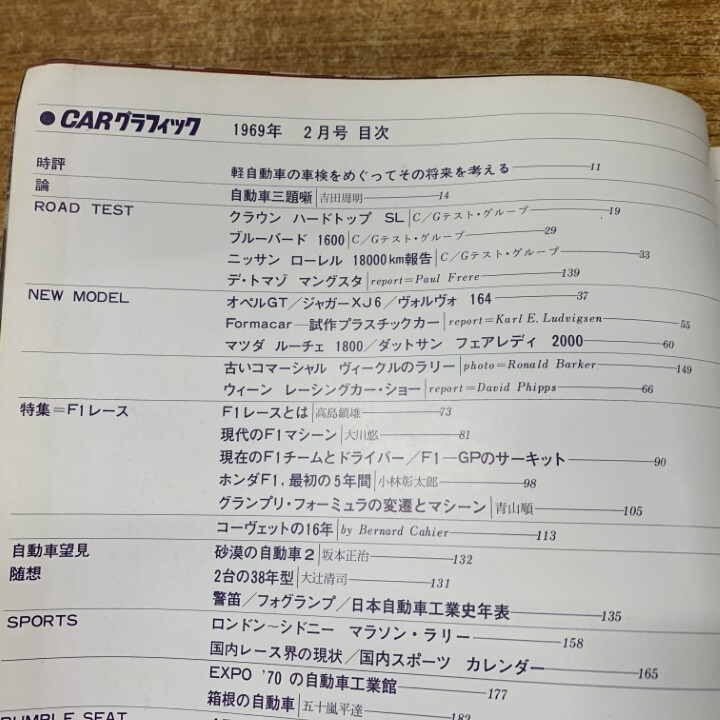 ● CARグラフィック 1969年 2月号 目次
時評 軽自動車の車検をめぐってその将来を考える 11
論 自動車三題噺 吉田周明 14
ROAD TEST クラウン ハードトップ SL C/Gテスト・グループ 19
ブルーバード 1600 C/Gテスト・グループ 29
ニッサン ローレル 18000km報告 C/Gテスト・グループ 33
デ・トマゾ マングスタ report=Paul Frere 139
NEW MODEL オペルGT/ジャガーXJ6/ヴォルヴォ 164 37
Formacar―試作プラスチックカー report=Karl E. Ludvigsen 55
マツダ ルーチェ 1800/ダットサン フェアレディ 2000 60
古いコマーシャル ヴィークルのラリー photo=Ronald Barker 149
ウィーン レーシングカー・ショー report=David Phipps 66
特集=F1レース F1レースとは 高島鎮雄 73
現代のF1マシーン 大川悠 81
現在のF1チームとドライバー/F1―GPのサーキット 90
ホンダF1,最初の5年間 小林彰太郎 98
グランプリ・フォーミュラの変遷とマシーン 青山順 105
コーヴェットの16年 by Bernard Cahier 113
自動車望見 砂漠の自動車2 坂本正治 132
随想 2台の38年型 大辻清司 131
警笛/フォグランプ/日本自動車工業史年表 135
SPORTS ロンドン~シドニー マラソン・ラリー 158
国内レース界の現状/国内スポーツ カレンダー 165
EXPO '70 の自動車工業館 177
箱根の自動車 五十嵐平達 182
RUMBLE SEAT